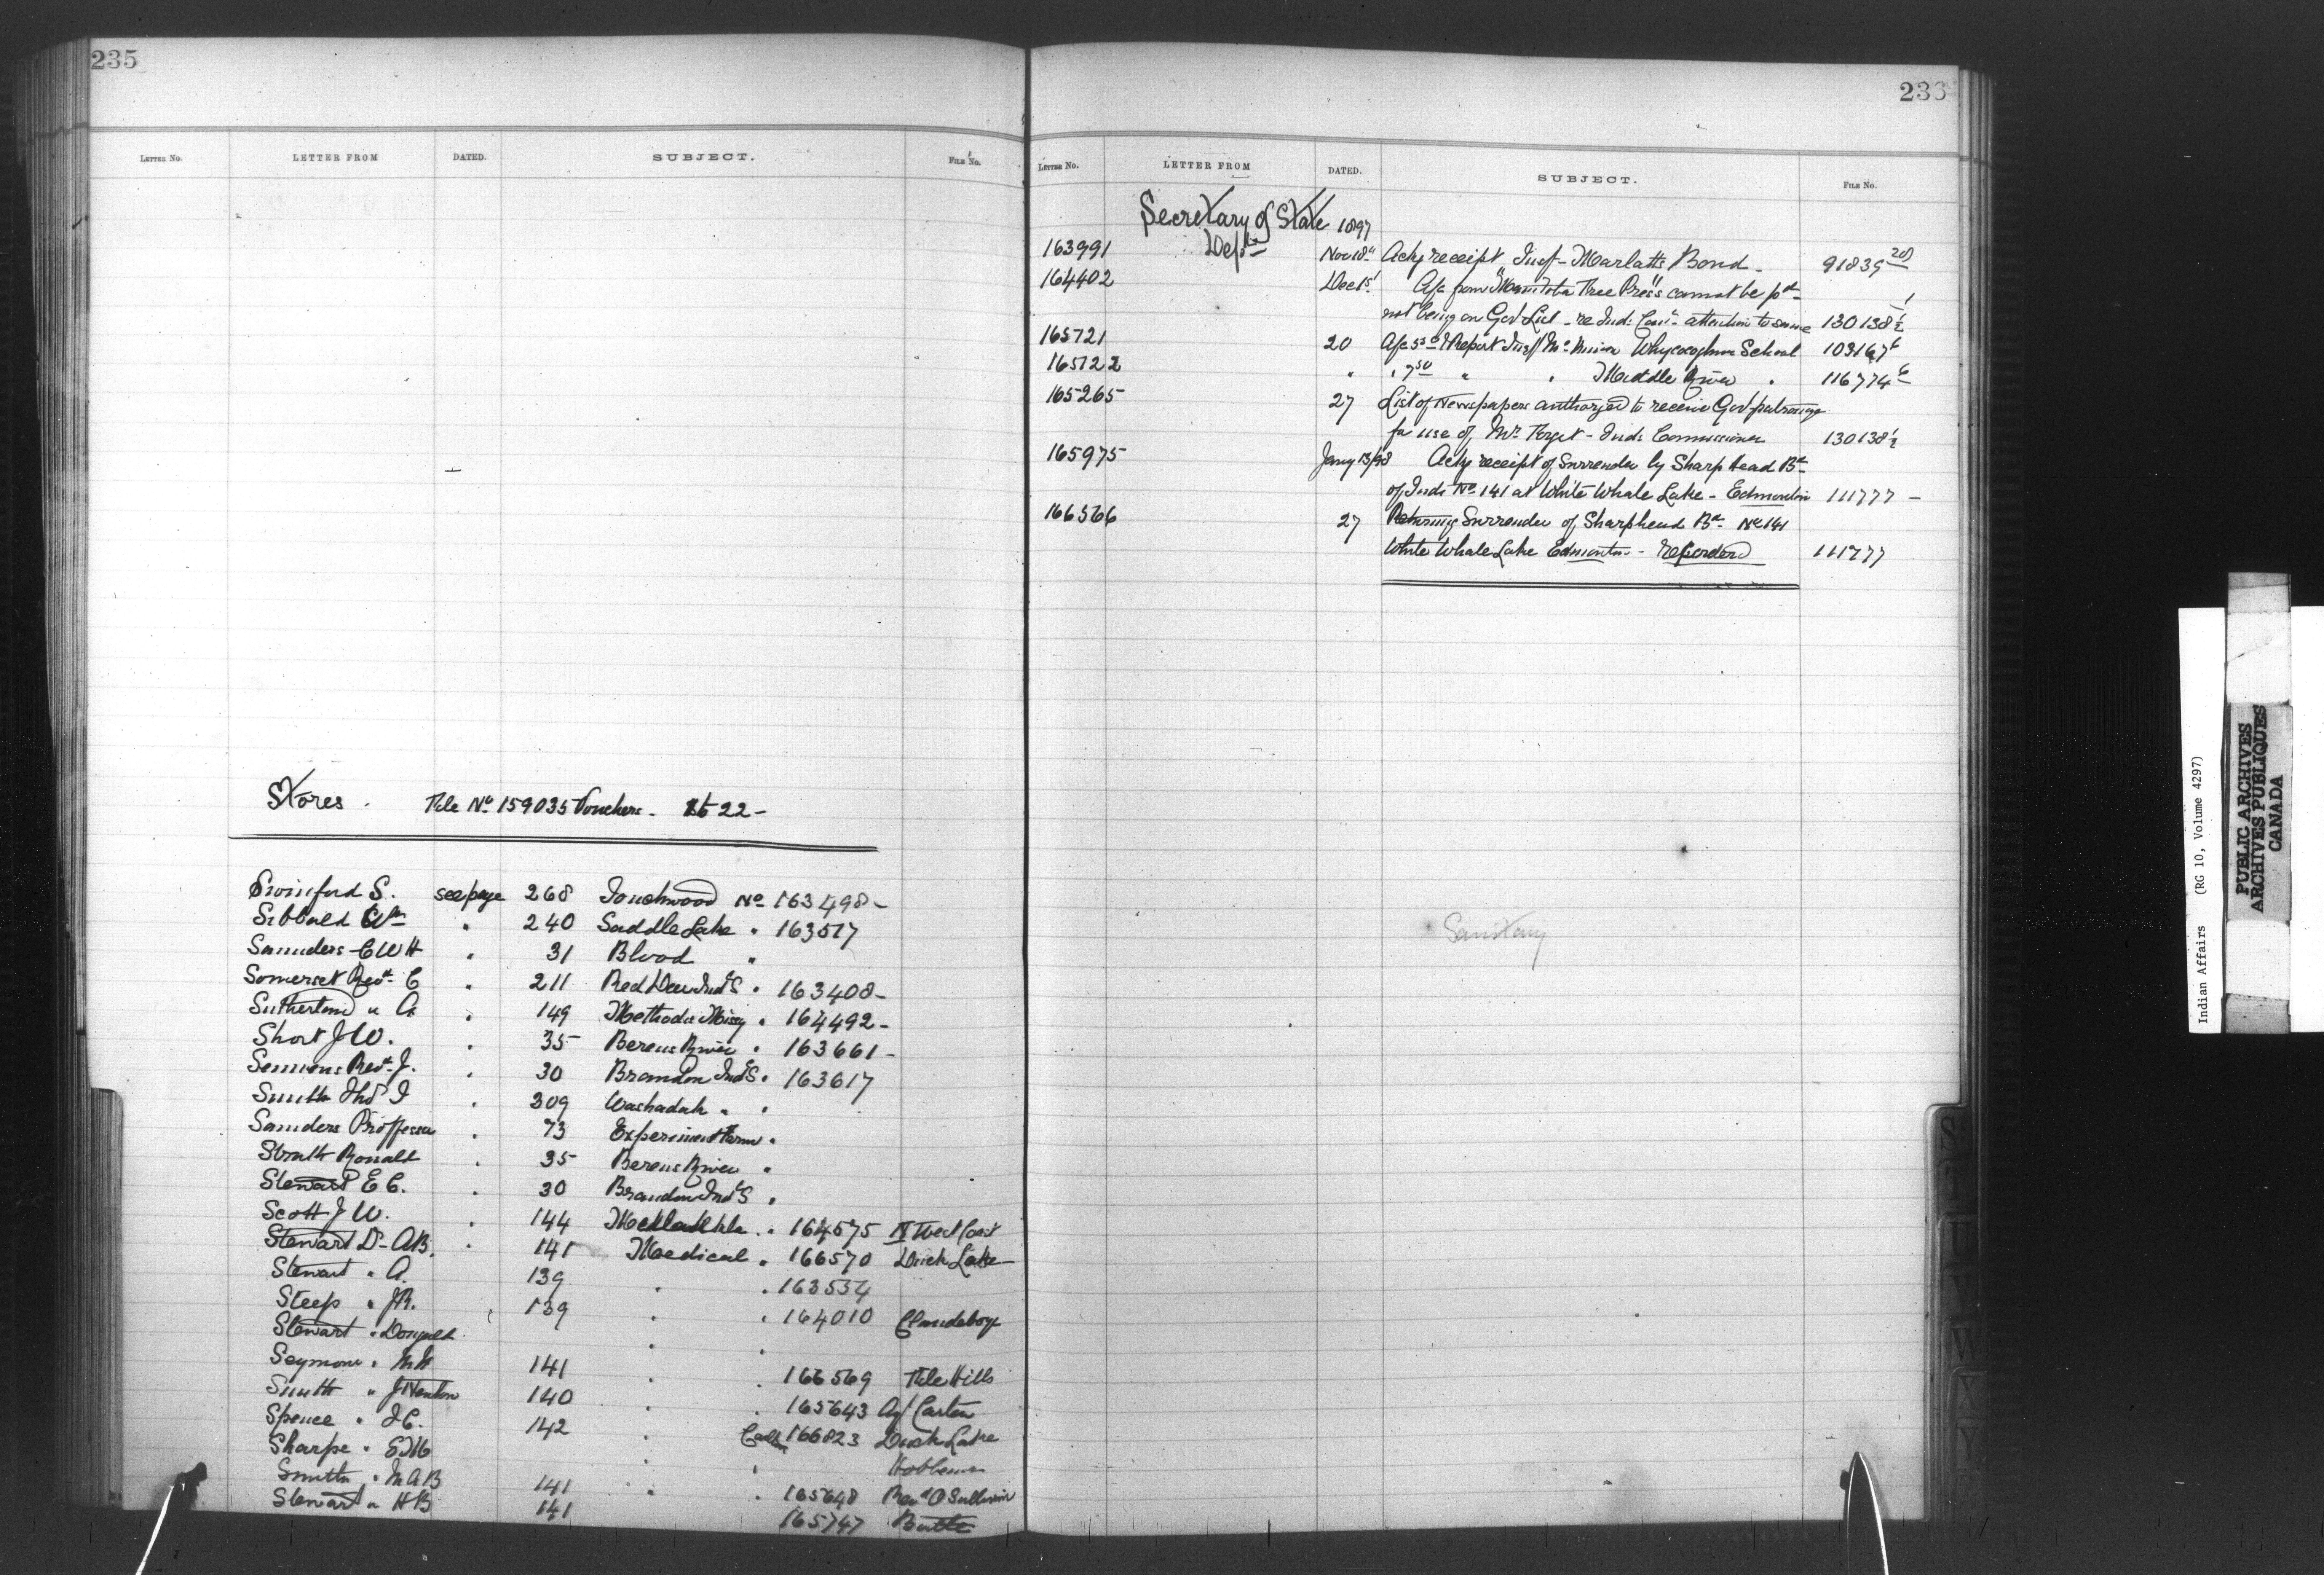 235
LETTER No. LETTER FROM DATED. SUBJECT. FILE No.
Stores. File No 159035 Vouchers - 22 -
Swinford S. see page 268 Touchwood No 163498 -
Sibbald Wm " 240 Saddle Lake " 163517
Saunders C W H " 31 Blood "
Somerset Revd C " 211 Red Deer Ind S " 163408 -
Sutherland " A " 149 Methodis Missy " 164492 -
Short J W. " 35 Berens River " 163661 -
Semmens Revd J. " 30 Brandon Ind S " 163617
Smith Thos I " 309 Washadah " "
Saunders Proffessor " 73 Experiment Farm "
Smith Ronald " 35 Berens River "
Stewart E C. " 30 Brandon Ind S "
Scott J W. " 144 Metlakahtla " 164575 N West Coast
Stewart Dr A B. " 141 Medical " 166570 Duck Lake
Stewart " A. 139 " " 163534
Steep " J R. 139 " " 164010 Clandeboye
Stewart " Donald " "
Seymour " M H 141 " " 166569 File Hills
Smith " J Henton 140 " " 165643 Carlton
Spence " J C. 142 " 166823 Duck Lake
Sharpe " " " Hobbema
Smith " M A B 141 " " 165648 Revd O'Sullivan
Stewart " H B 141 165747 Battle
236
LETTER No. LETTER FROM DATED. SUBJECT. FILE No.
Secretary of State 1897
163991 Dept Nov 18" Ackg receipt Insp - Marlatts Bond - 91839 20
164402 Dec 1st A/c from "Manitoba Free Press" cannot be pd -
not being on Govt List - re Ind: Comr attention to same 130138 1/2
165721 20 A/c & Report Insp McKinnon Whycocoghma School 103167 6
165722 " " 7 50 " " Middle River " 116774 6
165265 27 List of Newspapers authorized to receive Govt patronage
for use of Mr Forget - Inds Commissioner 130138 1/2
165975 Jany 13/98 Ackg receipt of Surrender by Sharphead Bd
of Inds No 141 at White Whale Lake - Edmonton 111777 -
166566 27 Returning Surrender of Sharphead Bd No 141
White Whale Lake Edmonton - recorded 111777
Sanitary
S
T
U
V
W
X
Y
Indian Affairs (RG 10, Volume 4297)
PUBLIC ARCHIVES
ARCHIVES PUBLIQUES
CANADA